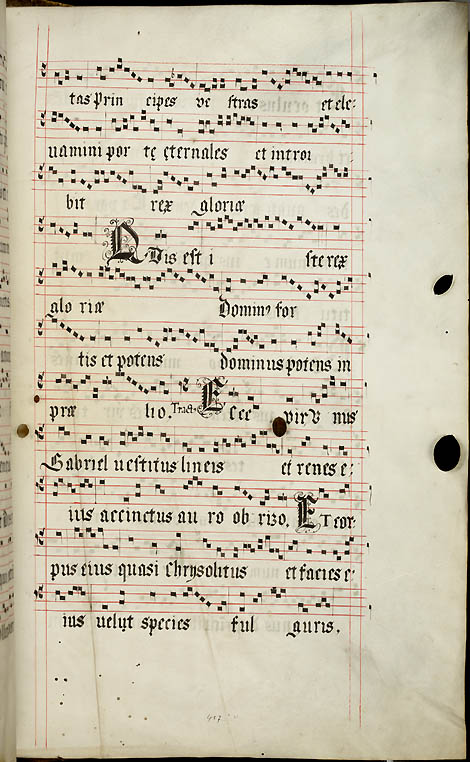 tas Prin cipes ve stras et ele:
uamini por te eternales et introi
bit rex gloriæ
Quis est i ste rex
glo riæ Dominꝰ for
tis et potens dominus potens in
præ lio. Tract. Ecce vir Vnus
Gabriel uestitus lineis et renes e:
ius accinctus au ro ob rizo. Et cor
pus eius quasi Chrysolitus et facies e:
ius uelut species ful guris.
417